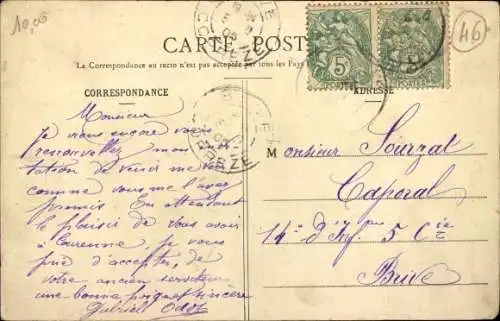 10,00
46
CARTE POST
La Correspondance au recto n'est pas acceptée par tous les Pays
5
CORRESPONDANCE
ADRESSE
CORREZE
CORREZE
Monsieur
je viens encore vous
renouveller mon
tation de venir me voir
comme vous me l'avez
promis. En attendant
le plaisir de vous avoir
à Correze, je vous
prie d'accepter, de
votre ancien serviteur
une bonne poignet sincère
Gabriel
Monsieur Sourzat
Caporal
14e d'Inf 5 Cie
Brive